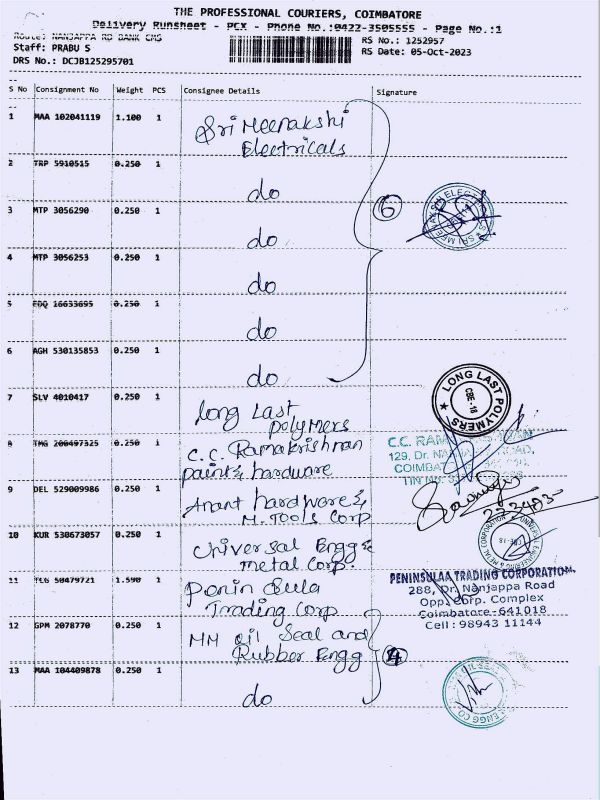 THE PROFESSIONAL COURIERS, COIMBATORE
Delivery Runsheet - PCX - Phone No.:0422-3505555 - Page No.:1
Route: NANJAPPA RD BANK CMS
RS No.: 1252957
Staff: PRABU S
RS Date: 05-Oct-2023
DRS No.: DCJB125295701
S No Consignment No Weight PCS Consignee Details Signature
1 MAA 102041119 1.100 1 Sri Meenakshi
Electricals
2 TRP 5910515 0.250 1 do
3 MTP 3056290 0.250 1 do
6
4 MTP 3056253 0.250 1 do
5 EDQ 16633695 0.250 1 do
6 AGH 530135853 0.250 1 do
7 SLV 4010417 0.250 1 Long Last
polymers
LONG LAST POLYMERS
CBE-18
8 TMG 200497325 0.250 1 C.C. Ramakrishnan
paint & hardware
129, Dr.
9 DEL 529009986 0.250 1 Anant hardware &
M. Tools Corp
10 KUR 530673057 0.250 1 Universal Engg &
metal Corp.
11 TLG 50479721 1.590 1 Penin Sula
Trading Corp
PENINSULAA TRADING CORPORATION
288, Dr. Nanjappa Road
Opp. Corp. Complex
Coimbatore-641018
Cell: 98943 11144
12 GPM 2078770 0.250 1 MM oil Seal and
Rubber Engg
4
13 MAA 104409878 0.250 1 do